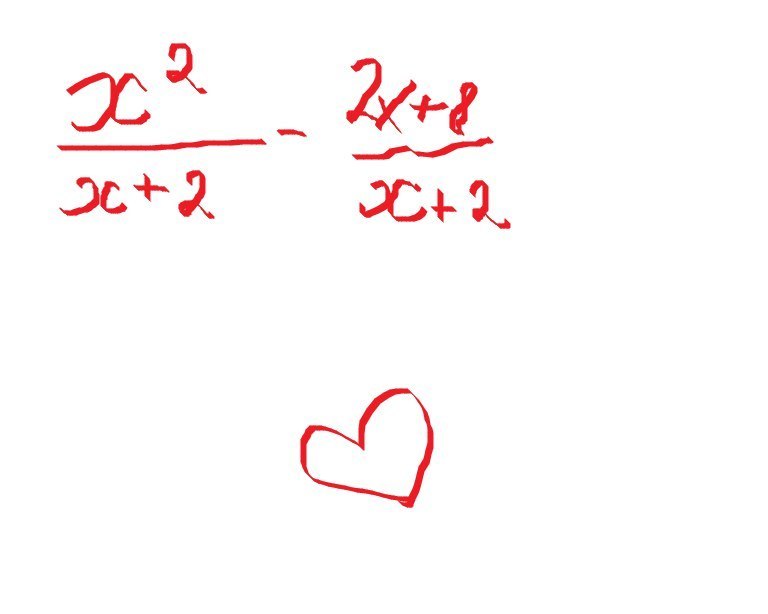 x² / x+2 - 2x+8 / x+2